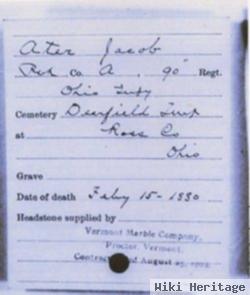 Ater Jacob
Co. A. 90" Regt.
Ohio Infy
Cemetery Deerfield Twp
at Ross Co
Ohio
Grave
Date of death Feby 15-1880
Headstone supplied by
Vermont Marble Company,
Proctor, Vermont.
Contract of August 25,
Wiki Heritage